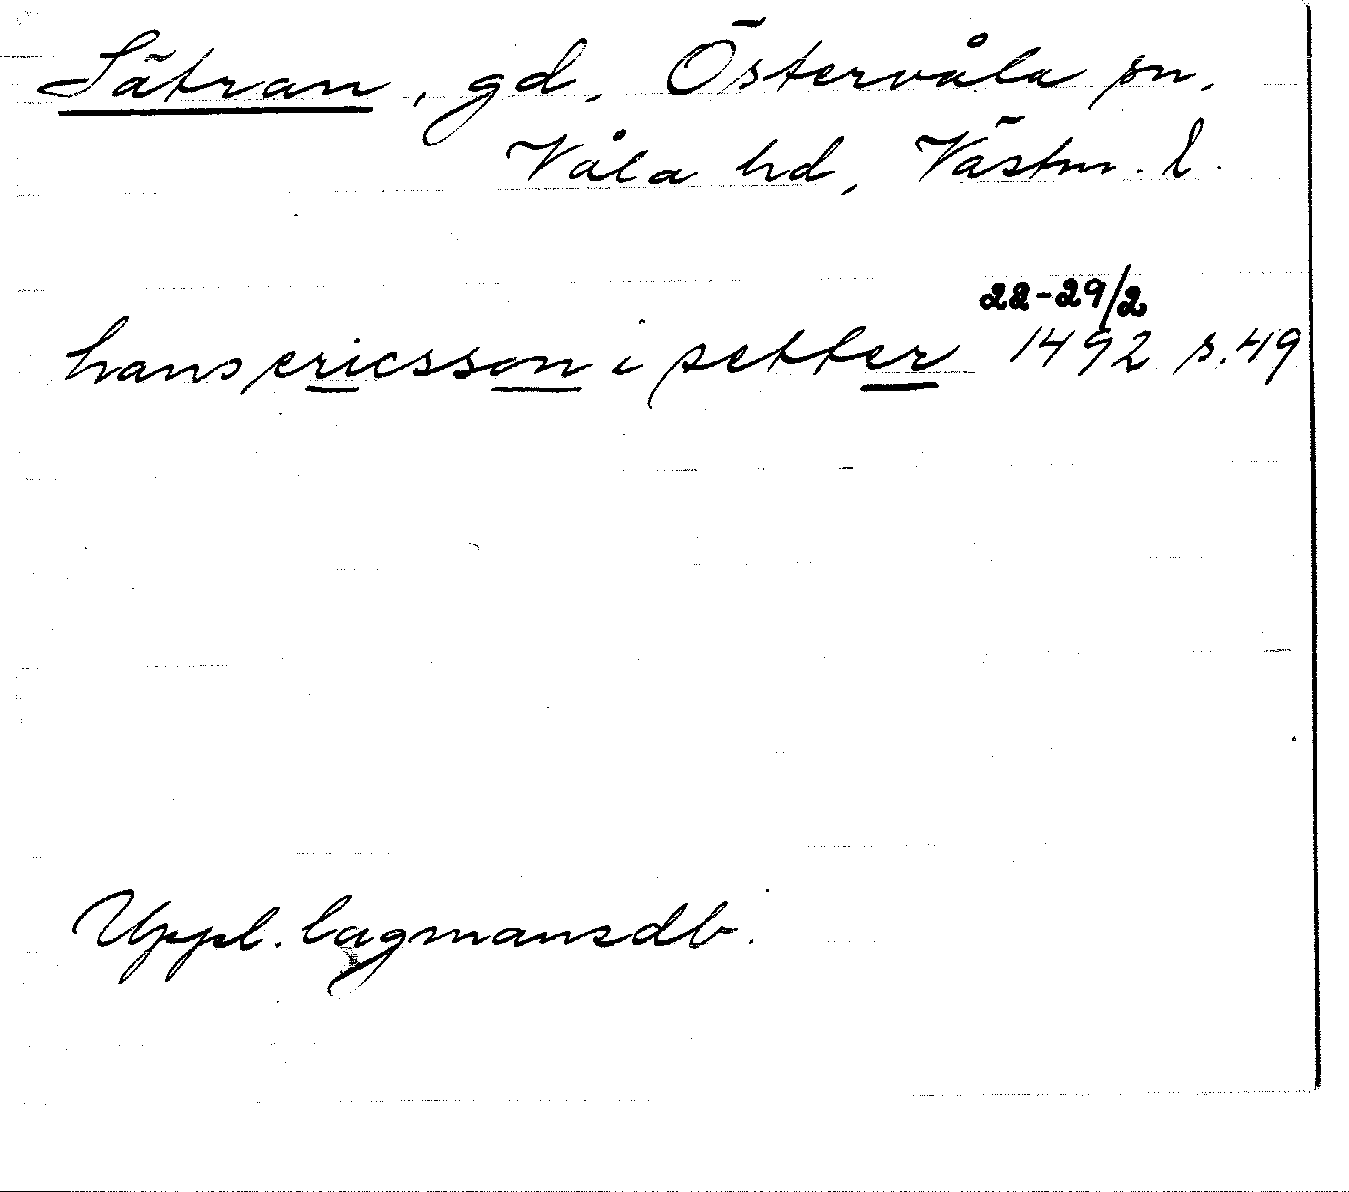 Sätran, gd, Östervåla sn,
Våla hd, Västm. l.
22-29/2
hans ericsson i setter 1492 s. 49
Uppl. lagmansdb.